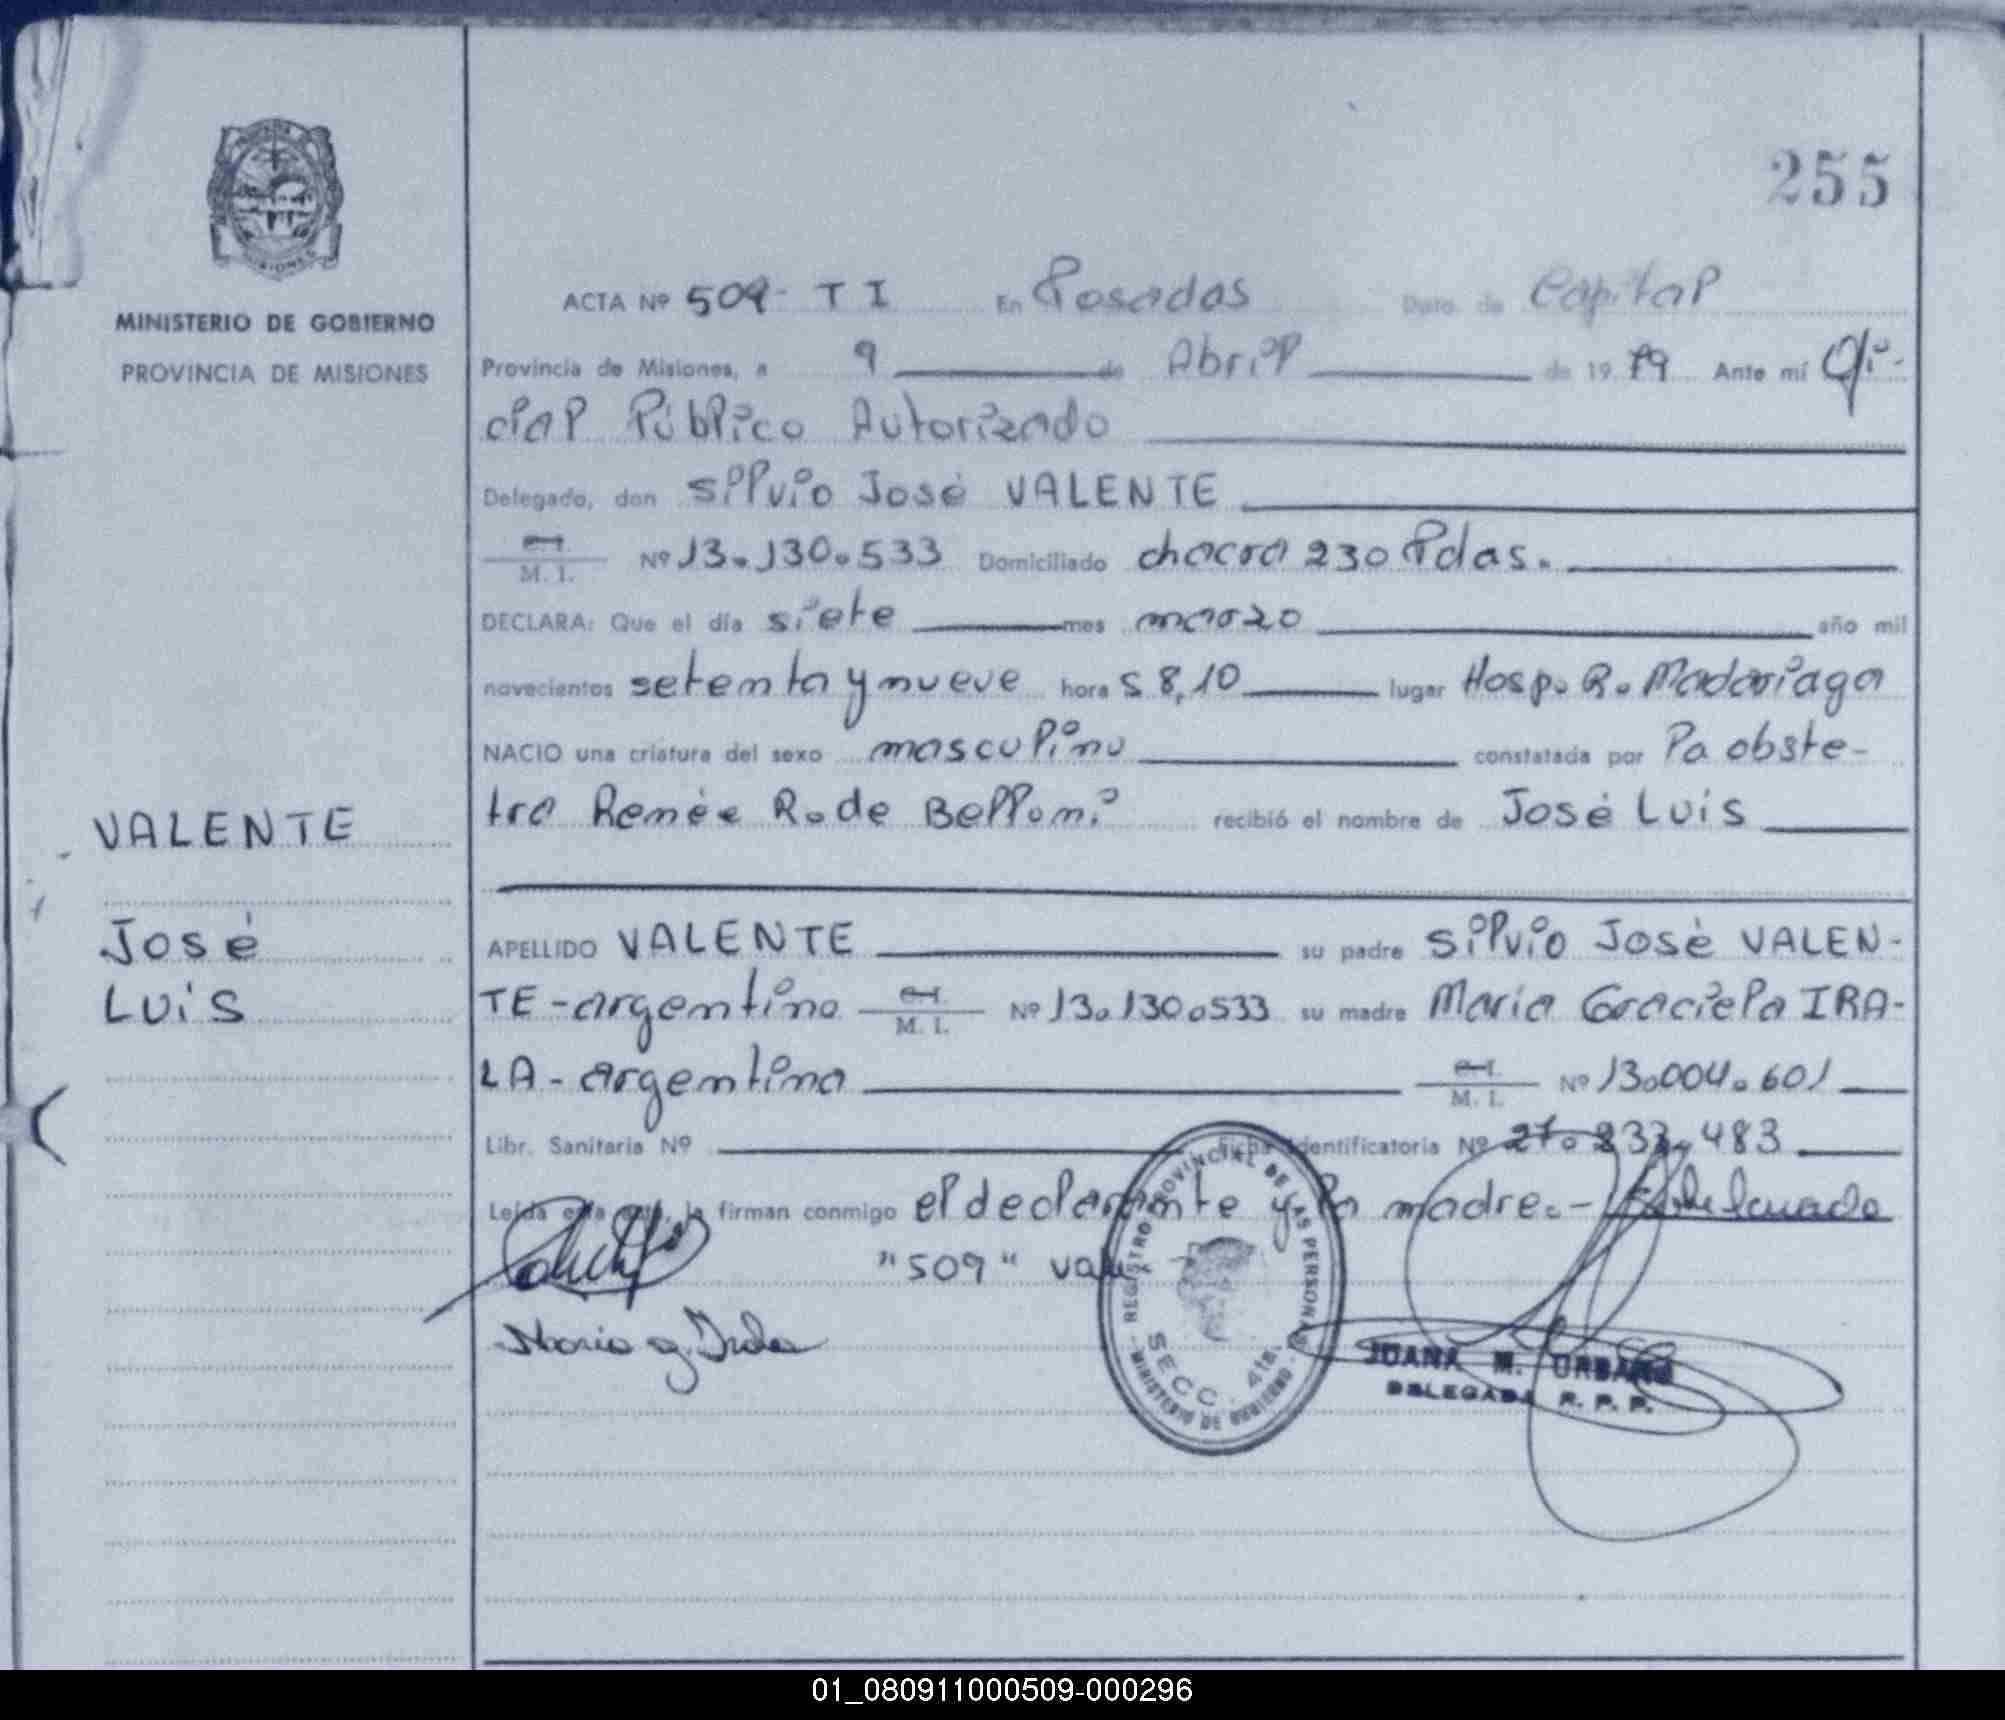 255
MISIONES
MINISTERIO DE GOBIERNO
PROVINCIA DE MISIONES
VALENTE
José
Luis
ACTA Nº 509- T I En Posadas Dpto. de Capital
Provincia de Misiones, a 9 de Abril de 1979 Ante mí Ofi-
cial Público Autorizado
Delegado, don Silvio José VALENTE
M. I. Nº 13.130.533 Domiciliado chacra 230 Pdas.
DECLARA: Que el día siete mes marzo año mil
novecientos setenta y nueve hora s 8,10 lugar Hosp. R. Madariaga
NACIO una criatura del sexo masculino constatada por la obste-
tra Renée R. de Belloni recibió el nombre de José Luis
APELLIDO VALENTE su padre Silvio José VALEN-
TE - argentino M. I. Nº 13.130.533 su madre Maria Graciela IRA-
LA - argentina M. I. Nº 13.004.601
Libr. Sanitaria Nº Ficha Identificatoria Nº 27.233.483
Leída esta acta, la firman conmigo el declarante y la madre.-
"509" vale
Maria g. Irala
REGISTRO PROVINCIAL DE LAS PERSONAS
SECC. 4ta.
MINISTERIO DE GOBIERNO
JUANA M. URBANO
DELEGADA R. P. P.
01_080911000509-000296